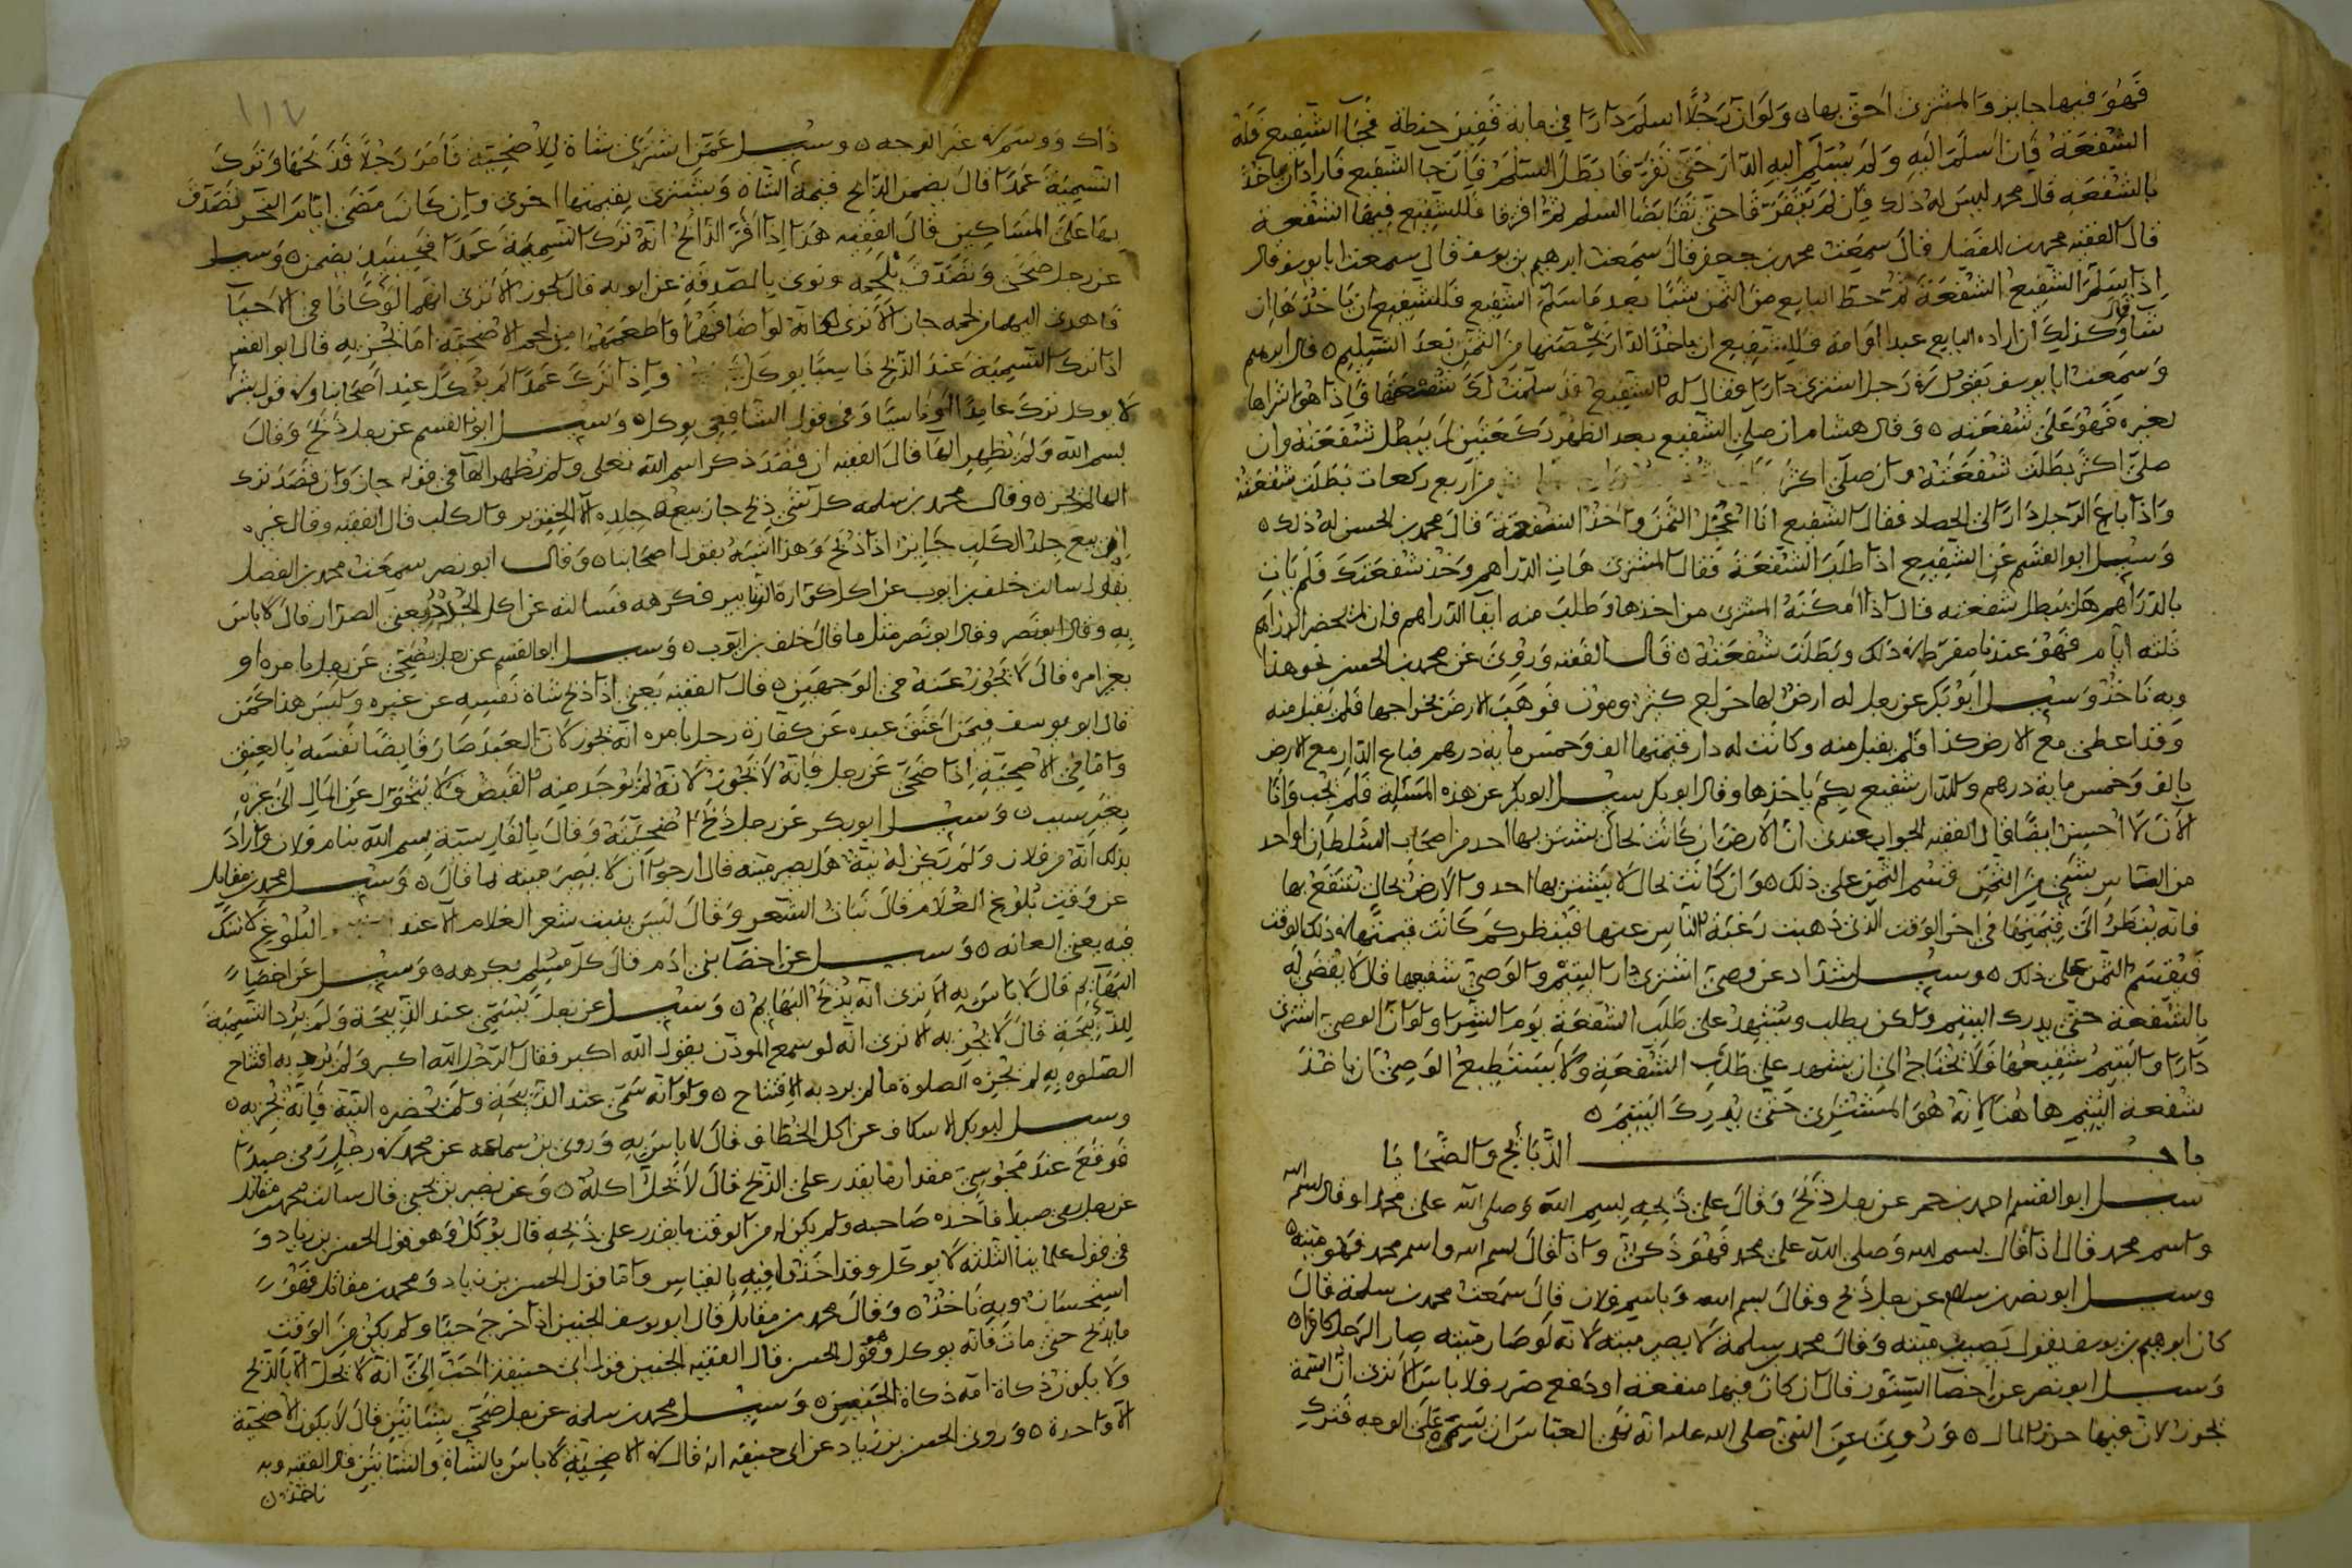 فهو فيها جايز والمشتري احق بها ولو ان رجلا اسلم دارا في ماية قفيز حنطة فجا الشفيع فله
الشفعة فان اسلم اليه ولم يسلم اليه الدار حتى تفرقا بطل السلم فان جا الشفيع فاراد ان ياخذ
بالشفعة قال محمد ليس له ذلك فان لم يتفرقا حتى تقابضا السلم ثم افترقا فللشفيع فيها الشفعة
قال الفقيه محمد بن الفضل قال سمعت محمد بن جعفر قال سمعت ابرهيم بن يوسف قال سمعت ابا يوسف قال
اذا سلم الشفيع الشفعة ثم حط البايع من الثمن شيا بعد ما سلم الشفيع فللشفيع ان ياخذها ان
شا وكذلك ان زاده البايع عبدا او امة فللشفيع ان ياخذ الدار بحصتها من الثمن بعد التسليم قال ابرهيم
وسمعت ابا يوسف يقول في رجل اشترى دارا فقال له الشفيع قد سلمت لك شفعتها فاذا هو اشتراها
لغيره فهو على شفعته وقال هشام ان صلى الشفيع بعد الظهر ركعتين لم يبطل شفعته وان
صلى اكثر بطلت شفعته وان صلى اكثر من اربع ركعات بطلت شفعته
واذا باع الرجل دارا الى الحصاد فقال الشفيع انا اعجل الثمن واخذ الشفعة قال محمد بن الحسن له ذلك
وسيل ابو القسم عن الشفيع اذا طلب الشفعة فقال المشتري هات الدراهم وخذ شفعتك فلم يات
بالدراهم هل يبطل شفعته قال اذا امكنه المشتري من اخذها وطلب منه ايفا الدراهم فان لم يحضر الدراهم
ثلثة ايام فهو عندنا مفرط في ذلك وبطلت شفعته قال الفقيه وروي عن محمد بن الحسن نحو هذا
وبه ناخذ وسيل ابو بكر عن رجل له ارض لها خراج كثير ومون فوهب الارض بخراجها فلم يقبل منه
وقد اعطى مع الارض كذا فلم يقبل منه وكانت له دار قيمتها الف وخمس ماية درهم فباع الدار مع الارض
بالف وخمس ماية درهم وللدار شفيع بكم ياخذها وقال ابو بكر سيل ابو بكر عن هذه المسئلة فلم يجب وانا
الان لا احسن ايضا قال الفقيه الجواب عندي ان الارض ان كانت بحال يشتريها احد من اصحاب السلطان او احد
من الناس بشي من الثمن قسم الثمن على ذلك وان كانت بحال لا يشتريها احد والارض بحال ينتفع بها
فانه ينظر الى قيمتها في اخر الوقت الذي ذهبت رغبة الناس عنها فينظر كم كانت قيمتها في ذلك الوقت
فيقسم الثمن على ذلك وسيل شداد عن وصي اشترى دارا لليتيم والوصي شفيعها قال لا يقضي له
بالشفعة حتى يدرك اليتيم ولكن يطلب ويشهد على طلب الشفعة يوم الشرا ولو ان الوصي اشترى
دارا واليتيم شفيعها فلا يحتاج الى ان يشهد على طلب الشفعة ولا يستطيع الوصي ان ياخذ
شفعة اليتيم هاهنا لانه هو المشتري حتى يدرك اليتيم
باب الذبائح والضحايا
سيل ابو القسم احمد بن حم عن رجل ذبح وقال على ذبحه بسم الله وصلى الله على محمد او قال بسم الله
واسم محمد قال اذا قال بسم الله وصلى الله على محمد فهو ذكي واذا قال بسم الله واسم محمد فهو ميتة
وسيل ابو نصر بن سلام عن رجل ذبح وقال بسم الله وباسم فلان قال سمعت محمد بن سلمة قال
كان ابرهيم بن يوسف يقول يصير ميتة وقال محمد بن سلمة لا يصير ميتة لانه لو صار ميتة صار الرجل كافرا
وسيل ابو نصر عن اخصا السنور قال ان كان فيها منفعة او دفع ضرر فلا باس الا ترى ان السمة
تجوز لان فيها حرز المال وروي عن النبي صلى الله عليه انه نهى العباس ان يسم على الوجه فترك
ذاك ووسم في غير الوجه وسيل عمن اشترى شاة للاضحية فامر رجلا فذبحها وترك
التسمية عمدا قال يضمن الذابح قيمة الشاة ويشتري بقيمتها اخرى وان كانت مضى ايام النحر تصدق
بها على المساكين قال الفقيه هذا اذا اقر الذابح انه ترك التسمية عمدا فحينيذ يضمن وسيل
عن رجل ضحى وتصدق بلحمه ونوى بالصدقة عن ابويه قال يجوز الا ترى انهما لو كانا في الاحيا
فاهدى اليهما من لحمه جاز الا ترى انه لو اضافهما واطعمهما من لحم الاضحية اما يجزيه قال ابو القسم
اذا ترك التسمية عند الذبح ناسيا يوكل واذا ترك عمدا لم يوكل عند اصحابنا وفي قول بشر
لا يوكل ترك عامدا او ناسيا وفي قول الشافعي يوكل وسيل ابو القسم عن رجل ذبح وقال
بسم الله ولم يظهر الها قال الفقيه ان قصد ذكر اسم الله تعلى ولم يظهر الها في قوله جاز وان قصد ترك
الها لم يجز وقال محمد بن سلمة كل شي ذبح جاز بيع جلده الا الخنزير والكلب قال الفقيه وقال غيره
ان بيع جلد الكلب جايز اذا ذبح وهذا اشبه بقول اصحابنا وقال ابو نصر سمعت محمد بن الفضل
يقول سالت خلف بن ايوب عن اكل الزنابير فكرهه فسالته عن اكل يعني الصرار قال لا باس
به وقال ابو نصر وقال ابو نصر مثل ما قال خلف بن ايوب وسيل ابو القسم عن رجل يضحي عن رجل بامره او
بغير امره قال لا يجوز عنه في الوجهين قال الفقيه يعني اذا ذبح شاة نفسه عن غيره وليس هذا كمن
قال ابو يوسف فيمن اعتق عبده عن كفارة رجل بامره انه يجوز لان العبد صار قابضا نفسه بالعتق
واما في الاضحية اذا ضحى عن رجل فانه لا يجوز لانه لم يوجد منه القبض فلا يتحول عن المال الى غيره
بغير سبب وسيل ابو بكر عن رجل ذبح اضحيته وقال بالفارسية بسم الله بنام فلان واراد
بذلك انه من فلان ولم تكن له نية هل يصير ميتة قال ارجوا ان لا يصير ميتة بما قال وسيل محمد بن مقاتل
عن وقت بلوغ الغلام قال نبات الشعر وقال ليس ينبت شعر الغلام الا عند البلوغ لا شك
فيه يعني العانة وسيل عن اخصا بني ادم قال كل مسلم يكرهه وسيل عن اخصا
البهايم قال لا باس به الا ترى انه يذبح البهايم وسيل عن رجل يسمي عند الذبيحة ولم يرد التسمية
للذبيحة قال لا يجزيه الا ترى انه لو سمع الموذن يقول الله اكبر فقال الرجل الله اكبر ولم يرد به افتتاح
الصلوة به لم يجزه الصلوة ما لم يرد به الافتتاح ولو انه سمى عند الذبيحة ولم يحضره النية فانه يجزيه
وسيل ابو بكر الاسكاف عن اكل الخطاف قال لا باس به وروى بن سماعة عن محمد في رجل رمى صيدا
فوقع عند مجوسي مقدار ما يقدر على الذبح قال لا يحل اكله وعن نصير بن يحيى قال سالت محمد بن مقاتل
عن رجل رمى صيدا فاخذه صاحبه ولم يكن له من الوقت ما يقدر على ذبحه قال يوكل وهو قول الحسن بن زياد و
في قول علماينا الثلثة لا يوكل وقد اخذوا فيه بالقياس واما قول الحسن بن زياد ومحمد بن مقاتل فهو
استحسان وبه ناخذ وقال محمد بن مقاتل قال ابو يوسف الجنين اذا خرج حيا ولم يكن من الوقت
ما يذبح حتى مات فانه يوكل وهو قول الحسن قال الفقيه الجنين قول ابي حنيفة احب الي انه لا يحل الا بالذبح
ولا يكون ذكاة امه ذكاة الجنين وسيل محمد بن سلمة عن رجل ضحى بشاتين قال لا يكون الاضحية
الا واحدة وروى الحسن بن زياد عن ابي حنيفة انه قال في الاضحية لا باس بالشاة والشاتين قال الفقيه وبه
ناخذ
١١٧